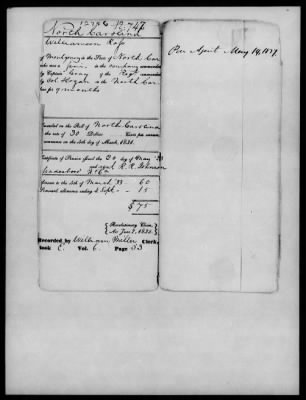 North Carolina
Williamson Ross
of Montgomery in the State of North Car
who was a priv. in the company commanded
by Captain Gray of the Regt commanded
by Col Hogan in the North Car
line for 9 months
Inscribed on the Roll of North Carolina
at the rate of 30 Dollars Cents per annum,
to commence on the 4th day of March, 1831.
Certificate of Pension issued the 20 day of May '33
and sent R. R. Johnson
Arrears to the 4th of March '33 60
Semi-anl. allowance ending 4 Sept. 15
$ 75
Revolutionary Claim,
Act June 7, 1832.
Recorded by William Miller Clerk,
Book E. Vol. 6. Page 33
Per Agent May 19, 1837.